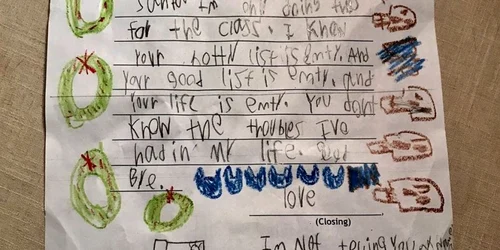 Santa Im only doing this
for the class. I know
your notty list is emty. And
your good list is emty. And
Your life is emty. You dont
know the troubles Ive
had in my life. Good
Bye.
love
(Closing)
Im Not telling you my